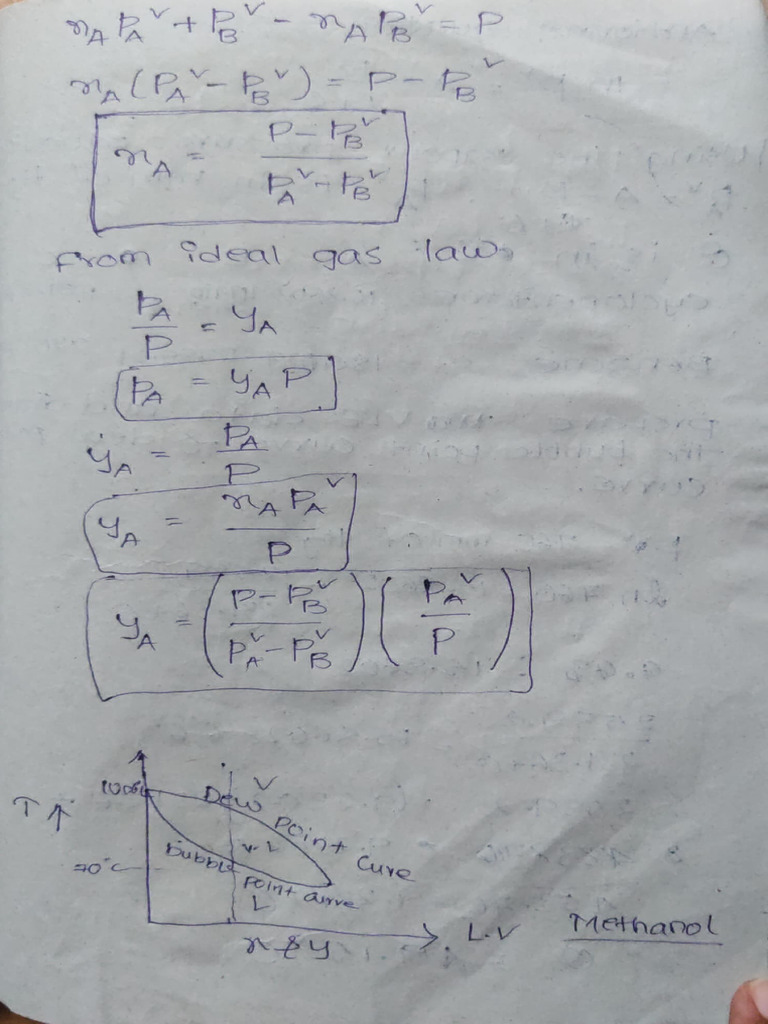 x_A P_A^v + P_B^v - x_A P_B^v = P
x_A (P_A^v - P_B^v) = P - P_B^v
x_A = (P - P_B^v) / (P_A^v - P_B^v)
from ideal gas law
P_A / P = y_A
P_A = y_A P
y_A = P_A / P
y_A = x_A P_A^v / P
y_A = ((P - P_B^v) / (P_A^v - P_B^v)) (P_A^v / P)
V
Dew point cure
T ↑
bubble point curve
L
x & y
L.V
Methanol